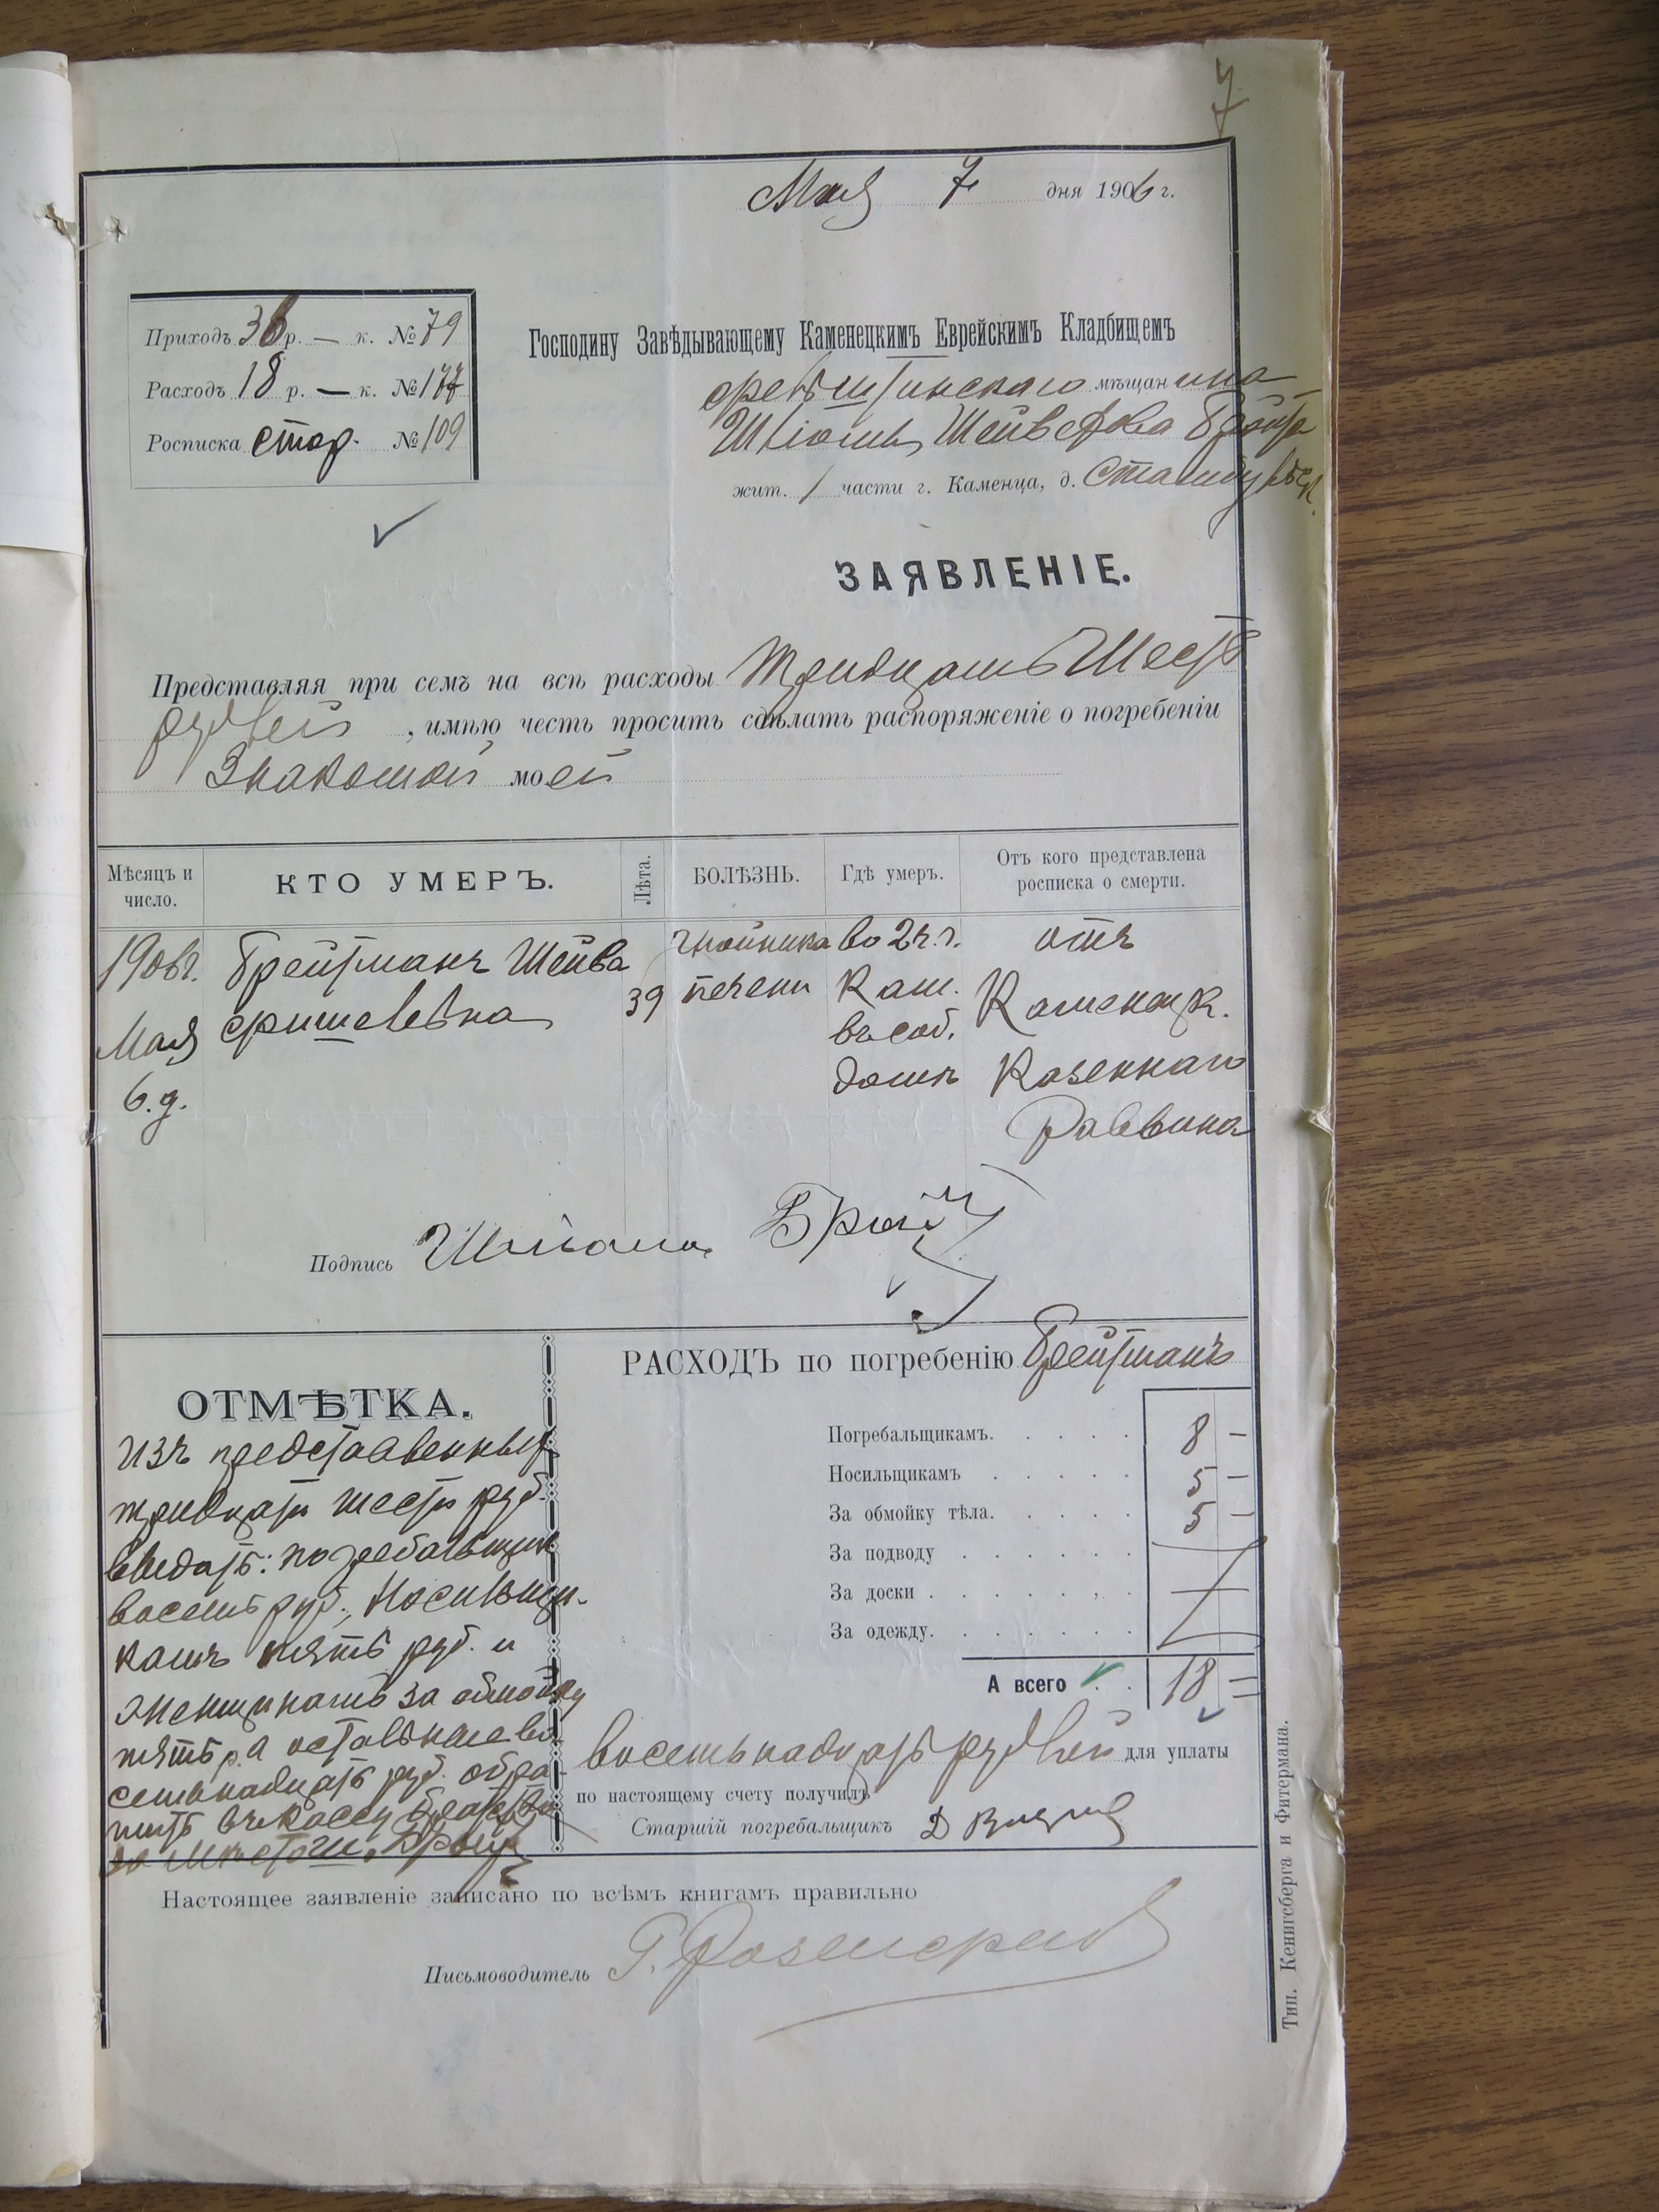 7
Мая 7 дня 1906 г.
Приходъ 36 р. — к. № 79
Расходъ 18 р. — к. № 177
Росписка стор. № 109
Господину Завѣдывающему Каменецкимъ Еврейскимъ Кладбищемъ
мѣщанина
Шлiомы
жит. 1 части г. Каменца, д.
ЗАЯВЛЕНІЕ.
Представляя при семъ на всѣ расходы Тридцать Шесть
рублей, имѣю честь просить сдѣлать распоряженіе о погребеніи
Знакомой моей
Мѣсяцъ и число.
КТО УМЕРЪ.
Лѣта.
БОЛѢЗНЬ.
Гдѣ умеръ.
Отъ кого представлена росписка о смерти.
1906 г. Брейтманъ Шейва 39 гнойника во 2 ч. г. отъ
Мая печени Кам. Каменецк.
6. д. въ соб. Казеннаго
домѣ Раввина
Подпись Шлiома
РАСХОДЪ по погребенію Брейтманъ
Погребальщикамъ. 8 —
Носильщикамъ 5 —
За обмойку тѣла. 5 —
За подводу
За доски
За одежду.
А всего 18 =
восемьнадцать рублей для уплаты
по настоящему счету получилъ
Старшій погребальщикъ
ОТМѢТКА.
Изъ представленныхъ
тридцать шесть руб.
выдать: погребальщик
восемь руб., Носильщи-
камъ пять руб. и
женщинамъ за обмойку
пять р. а остальные во
семьнадцать руб. обра-
тить въ кассу братства
за мѣсто
Настоящее заявленіе записано по всѣмъ книгамъ правильно
Письмоводитель Г.
Тип. Кенигсберга и Фитермана.